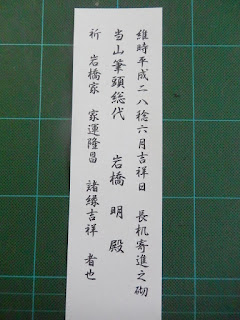 維時平成二八稔六月吉祥日 長机寄進之砌
当山筆頭総代 岩橋 明 殿
祈 岩橋家 家運隆昌 諸縁吉祥 者也